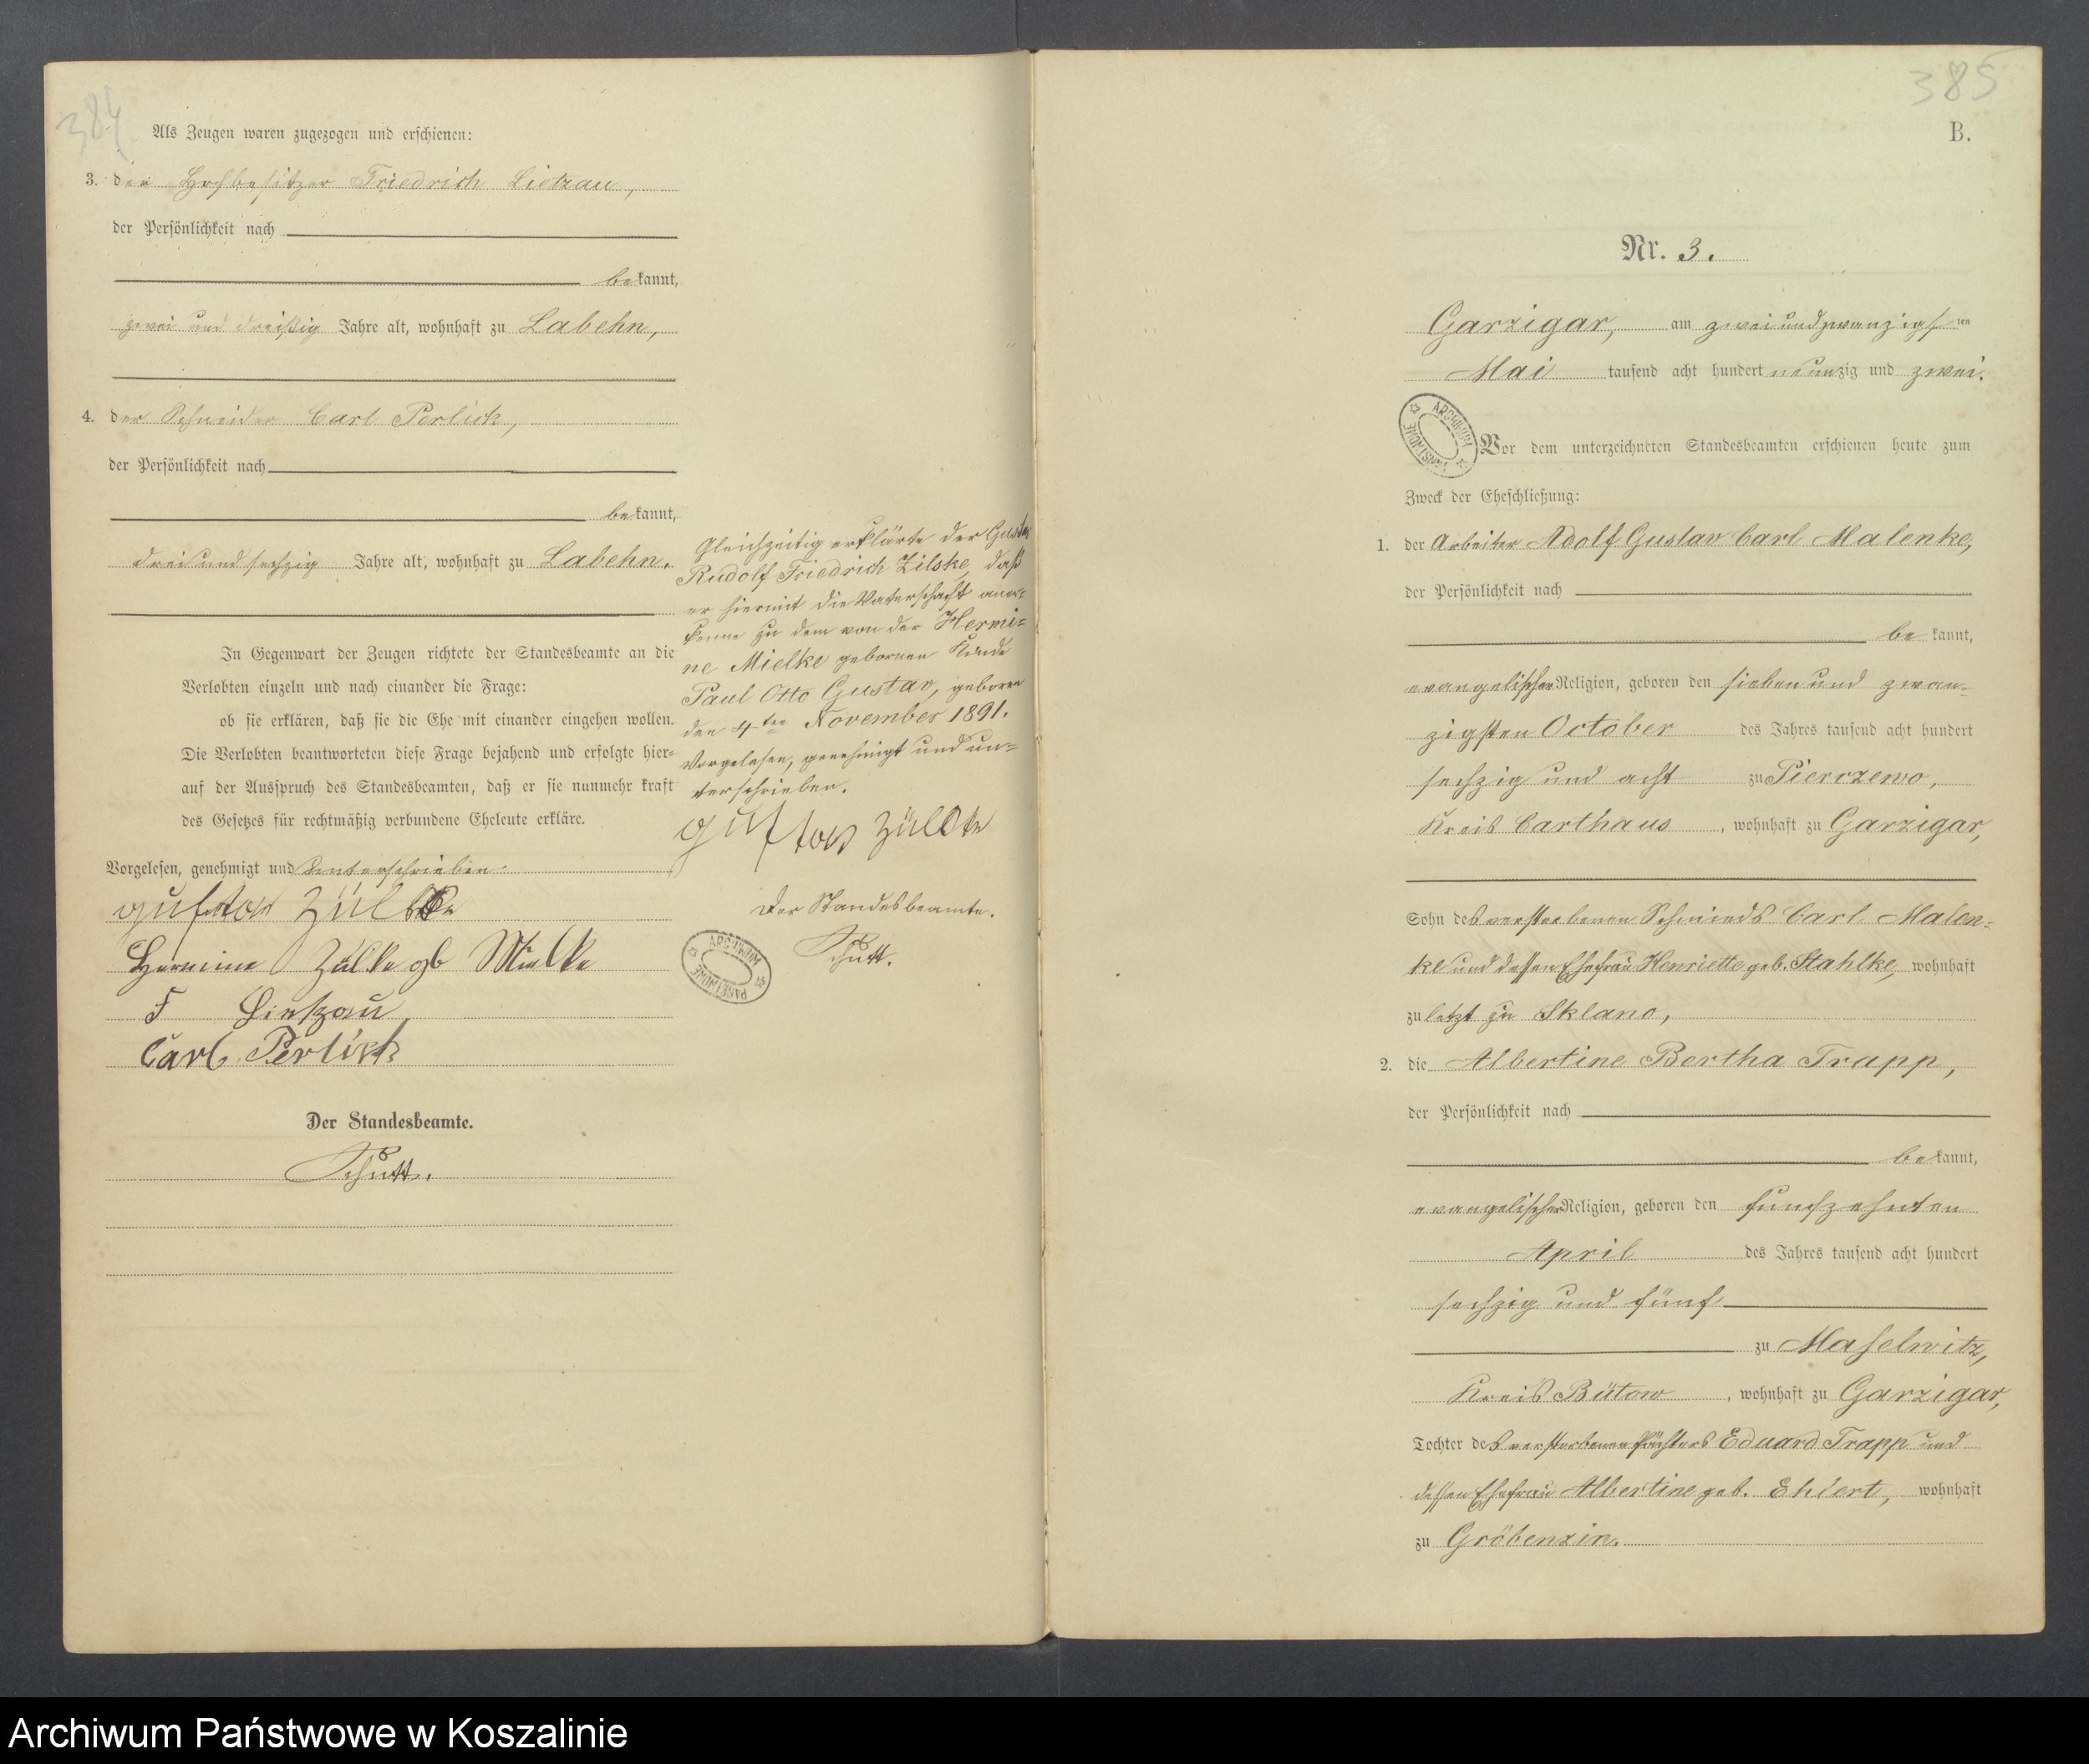 384
Als Zeugen waren zugezogen und erschienen:
3. der Hofbesitzer Friedrich Lietzau,
der Persönlichkeit nach
bekannt,
zwei und dreißig Jahre alt, wohnhaft zu Labehn,
4. der Schneider Carl Perlick,
der Persönlichkeit nach
bekannt,
drei und sechzig Jahre alt, wohnhaft zu Labehn.
In Gegenwart der Zeugen richtete der Standesbeamte an die
Verlobten einzeln und nach einander die Frage:
ob sie erklären, daß sie die Ehe mit einander eingehen wollen.
Die Verlobten beantworteten diese Frage bejahend und erfolgte hier-
auf der Ausspruch des Standesbeamten, daß er sie nunmehr kraft
des Gesetzes für rechtmäßig verbundene Eheleute erkläre.
Vorgelesen, genehmigt und unterschrieben
Gustav Zülke
Hermine Zülke gb Mielke
F Lietzau
Carl Perlick
Der Standesbeamte.
Schutt.
Gleichzeitig erklärte der Gustav
Rudolf Friedrich Zilske, daß
er hiermit die Vaterschaft aner-
kenne zu dem von der Hermi=
ne Mielke gebornen Kinde
Paul Otto Gustav, geboren
den 4ten November 1891.
Vorgelesen, genehmigt und un=
terschrieben.
Gustav Zülke
Der Standesbeamte.
Schutt.
ARCHIWUM
PAŃSTWOWE
385
B.
Nr. 3.
Garzigar, am zwei und zwanzigsten
Mai tausend acht hundert neunzig und zwei.
ARCHIWUM
PAŃSTWOWE
Vor dem unterzeichneten Standesbeamten erschienen heute zum
Zweck der Eheschließung:
1. der Arbeiter Adolf Gustav Carl Malenke,
der Persönlichkeit nach
bekannt,
evangelischer Religion, geboren den sieben und zwan=
zigsten October des Jahres tausend acht hundert
sechzig und acht zu Pierczewo,
Kreis Carthaus, wohnhaft zu Garzigar,
Sohn des verstorbenen Schmieds Carl Malen=
ke und dessen Ehefrau Henriette geb. Stahlke, wohnhaft
zuletzt zu Sklano,
2. die Albertine Bertha Trapp,
der Persönlichkeit nach
bekannt,
evangelischer Religion, geboren den funfzehnten
April des Jahres tausend acht hundert
sechzig und fünf
zu Maselwitz,
Kreis Bütow, wohnhaft zu Garzigar,
Tochter des verstorbenen Försters Eduard Trapp und
dessen Ehefrau Albertine geb. Ehlert, wohnhaft
zu Gröbenzin.
Archiwum Państwowe w Koszalinie